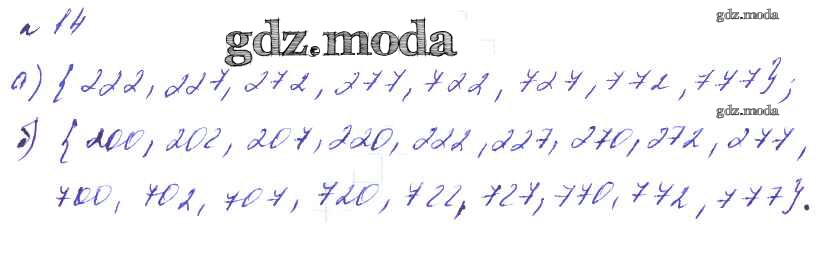 gdz.moda
№ 14
gdz.moda
а) {222, 227, 272, 277, 722, 727, 772, 777};
gdz.moda
б) {200, 202, 207, 220, 222, 227, 270, 272, 277,
700, 702, 707, 720, 722, 727, 770, 772, 777}.